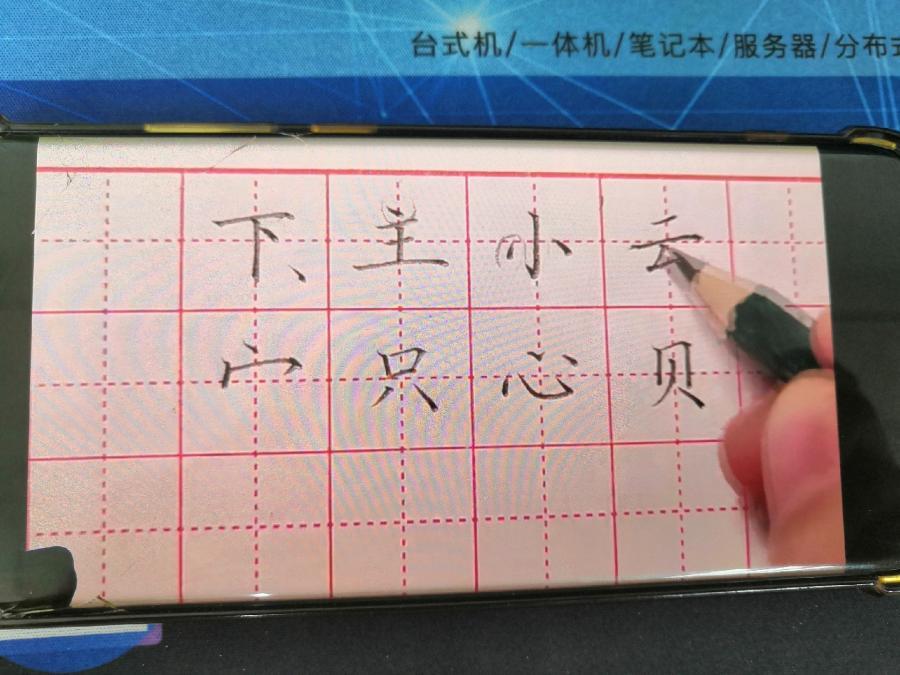 台式机/一体机/笔记本/服务器/分布式
下主小云
宀只心贝